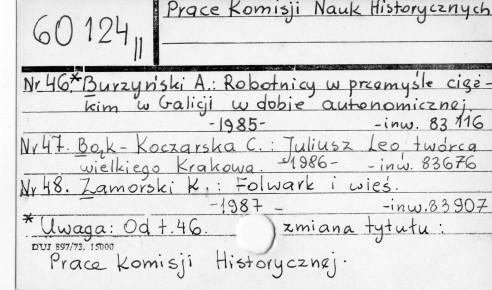 60124 II
Prace Komisji Nauk Historycznych
Nr 46.* Burzyński A.: Robotnicy w przemyśle cięż-
kim w Galicji w dobie autonomicznej.
-1985- -inw. 83 116
Nr 47. Bąk-Koczarska C.: Juliusz Leo twórca
wielkiego Krakowa. -1986- -inw. 83676
Nr 48. Zamorski K.: Folwark i wieś.
-1987- -inw. 83907
* Uwaga: Od t. 46. zmiana tytułu:
DUJ 897/73. 15000
Prace Komisji Historycznej.